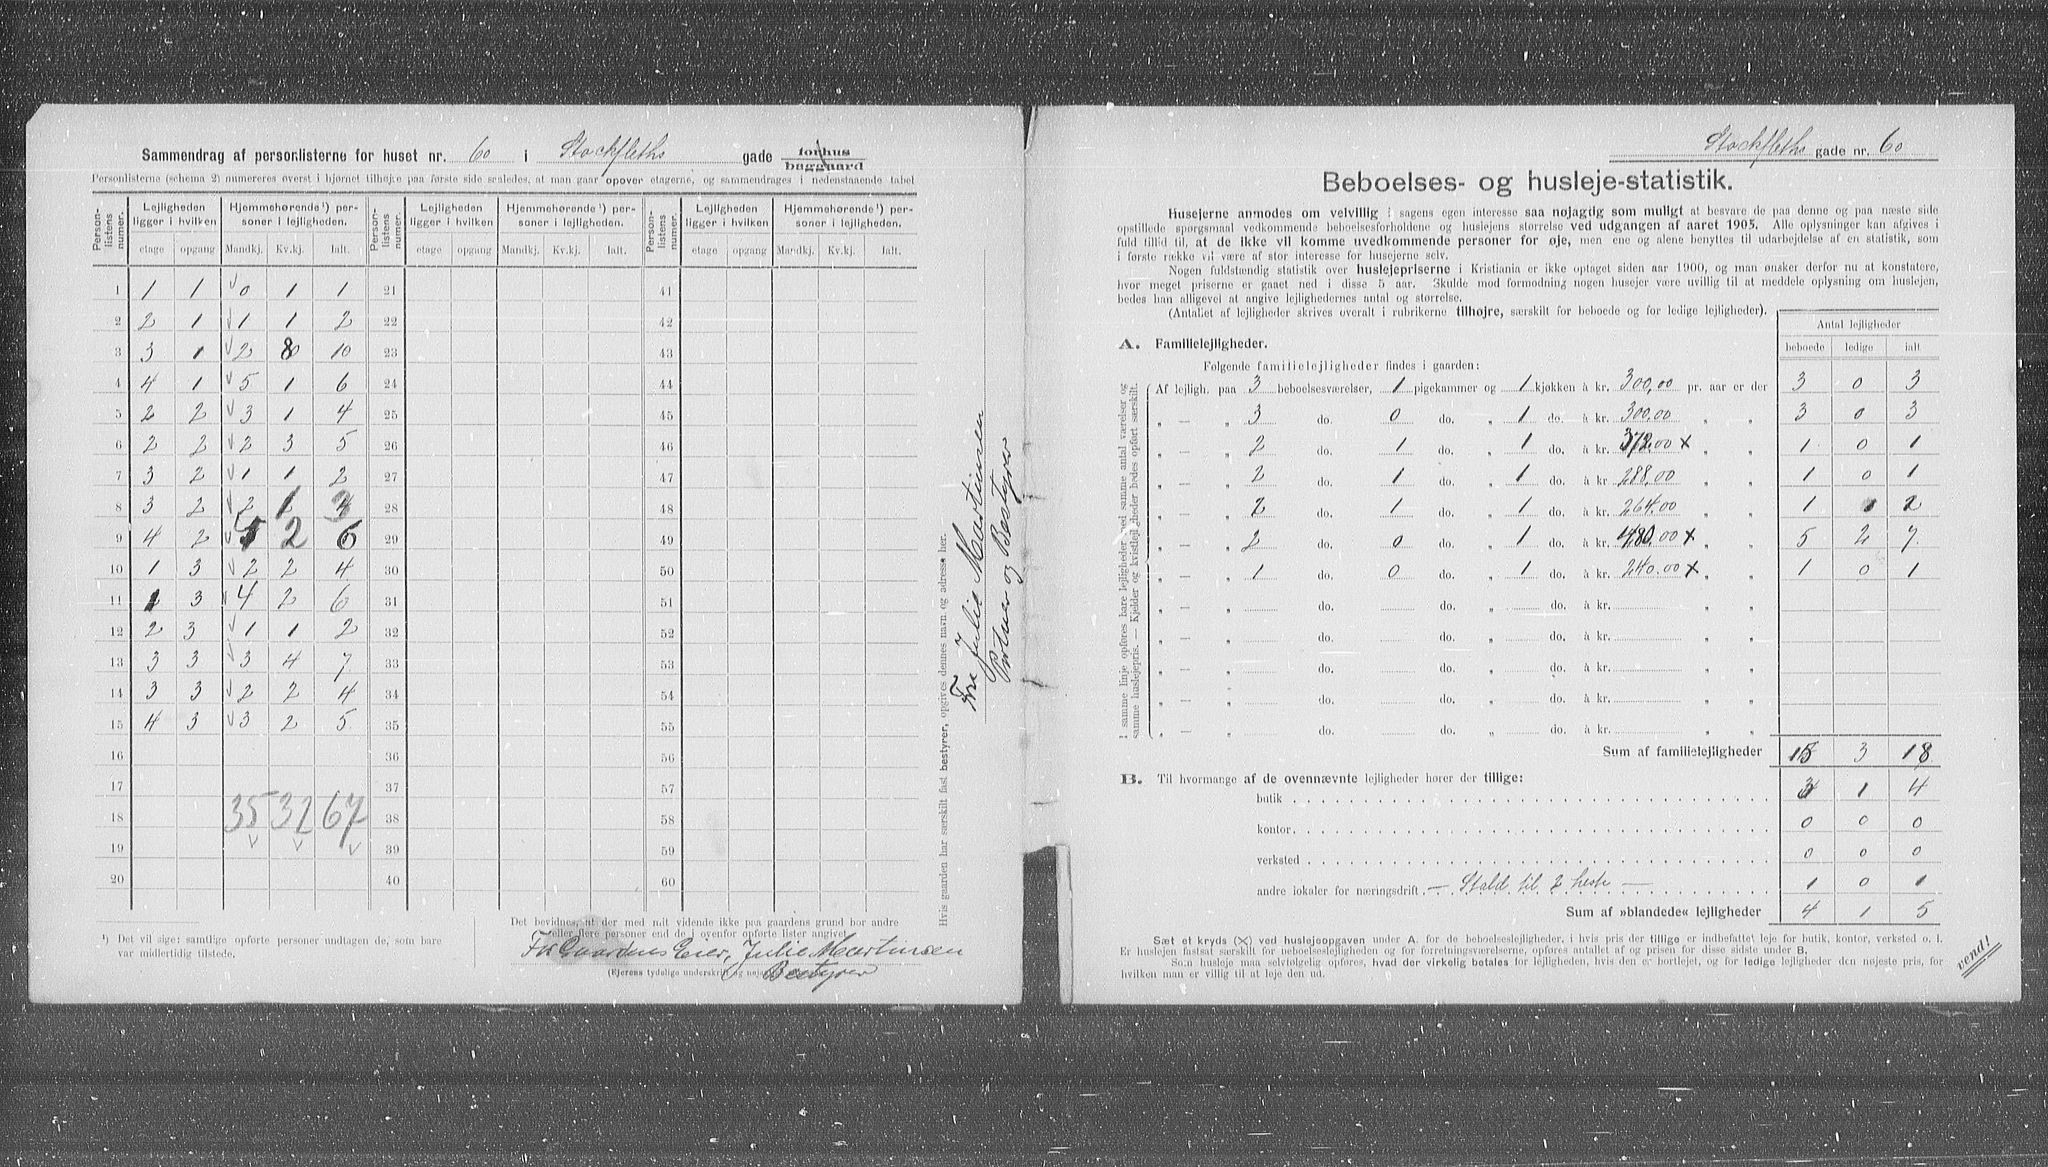 Sammendrag af personlisterne for huset nr. 60 i Stockfleths gade forhus
baggaard
Personlisterne (schema 2) numereres øverst i hjørnet tilhøjre paa første side saaledes, at man gaar opover etagerne, og sammendrages i nedenstaaende tabel
Person-listens numer. | Lejligheden ligger i hvilken | Hjemmehørende ¹) personer i lejligheden. | Person-listens numer. | Lejligheden ligger i hvilken | Hjemmehørende ¹) personer i lejligheden. | Person-listens numer. | Lejligheden ligger i hvilken | Hjemmehørende ¹) personer i lejligheden.
etage opgang Mandkj. Kv.kj. Ialt. etage opgang Mandkj. Kv.kj. Ialt. etage opgang Mandkj. Kv.kj. Ialt.
1 1 1 √ 0 1 1 21 41
2 2 1 √ 1 1 2 22 42
3 3 1 √ 2 8 10 23 43
4 4 1 √ 5 1 6 24 44
5 2 2 √ 3 1 4 25 45
6 2 2 √ 2 3 5 26 46
7 3 2 √ 1 1 2 27 47
8 3 2 √ 2 1 3 28 48
9 4 2 √ 2 6 29 49
10 1 3 √ 2 2 4 30 50
11 3 √ 4 2 6 31 51
12 2 3 √ 1 1 2 32 52
13 3 3 √ 3 4 7 33 53
14 3 3 √ 2 2 4 34 54
15 4 3 √ 3 2 5 35 55
16 36 56
17 37 57
18 35 32 67 38 58
19 √ √ √ 39 59
20 40 60
¹) Det vil sige: samtlige opførte personer undtagen de, som bare
var midlertidig tilstede.
Det bevidnes, at der med mit vidende ikke paa gaardens grund bor andre
eller flere personer end de i ovenfor opførte lister angivet.
For Gaardens Eier, Julie Martinsen
(Ejerens tydelige underskrift og nøjagtige
Bestyrer
Hvis gaarden har særskilt fast bestyrer, opgives dennes navn og adresse her.
Frk Julie Martinsen
Portner og Bestyrer
Stockfleths gade nr. 60
Beboelses- og husleje-statistik.
Husejerne anmodes om velvillig i sagens egen interesse saa nøjagtig som muligt at besvare de paa denne og paa næste side
opstillede spørgsmaal vedkommende beboelsesforholdene og huslejens størrelse ved udgangen af aaret 1905. Alle oplysninger kan afgives i
fuld tillid til, at de ikke vil komme uvedkommende personer for øje, men ene og alene benyttes til udarbejdelse af en statistik, som
i første række vil være af stor interesse for husejerne selv.
Nogen fuldstændig statistik over huslejepriserne i Kristiania er ikke optaget siden aar 1900, og man ønsker derfor nu at konstatere,
hvor meget priserne er gaaet ned i disse 5 aar. Skulde mod formodning nogen husejer være uvillig til at meddele oplysning om huslejen,
bedes han alligevel at angive lejlighedernes antal og størrelse.
(Antallet af lejligheder skrives overalt i rubrikerne tilhøjre, særskilt for beboede og for ledige lejligheder).
Antal lejligheder
beboede ledige ialt
A. Familielejligheder.
Følgende familielejligheder findes i gaarden:
I samme linje opføres bare lejligheder med samme antal værelser og
samme huslejepris. — Kjelder og kvistlejligheder bedes opført særskilt.
Af lejligh. paa 3 beboelsesværelser, 1 pigekammer og 1 kjøkken à kr. 300,00 pr. aar er der 3 0 3
„ — „ 3 do. 0 do. „ 1 do. à kr. 300.00 „ „ 3 0 3
„ — „ 2 do. 1 do. „ 1 do. à kr. 372.00 x „ „ 1 0 1
„ — „ 2 do. 1 do. „ 1 do. à kr. 288,00 „ „ 1 0 1
„ — „ 2 do. 1 do. „ 1 do. à kr. 264.00 „ „ 1 1 2
„ — „ 2 do. 0 do. „ 1 do. à kr. 480.00 x „ „ 5 2 7
„ — „ 1 do. 0 do. „ 1 do. à kr. 240.00 x „ „ 1 0 1
„ — „ do. do. „ do. à kr. „ „
„ — „ do. do. „ do. à kr. „ „
„ — „ do. do. „ do. à kr. „ „
„ — „ do. do. „ do. à kr. „ „
„ — „ do. do. „ do. à kr. „ „
Sum af familielejligheder 15 3 18
B. Til hvormange af de ovennævnte lejligheder hører der tillige:
butik 1 4
kontor 0 0 0
verksted 0 0 0
andre lokaler for næringsdrift — Stald til 2 heste — 1 0 1
Sum af »blandede« lejligheder 4 1 5
Sæt et kryds (X) ved huslejeopgaven under A. for de beboelseslejligheder, i hvis pris der tillige er indbefattet leje for butik, kontor, verksted o. l.
Er huslejen fastsat særskilt for beboelseslejligheden og for forretningsværelserne, opføres antallet af og prisen for disse sidste under B.
Som husleje maa selvfølgelig opføres, hvad der virkelig betales for lejligheden, hvis den er bortlejet, og for ledige lejligheder den nøjeste pris, for
hvilken man er villig til at leje den ud.
vend!